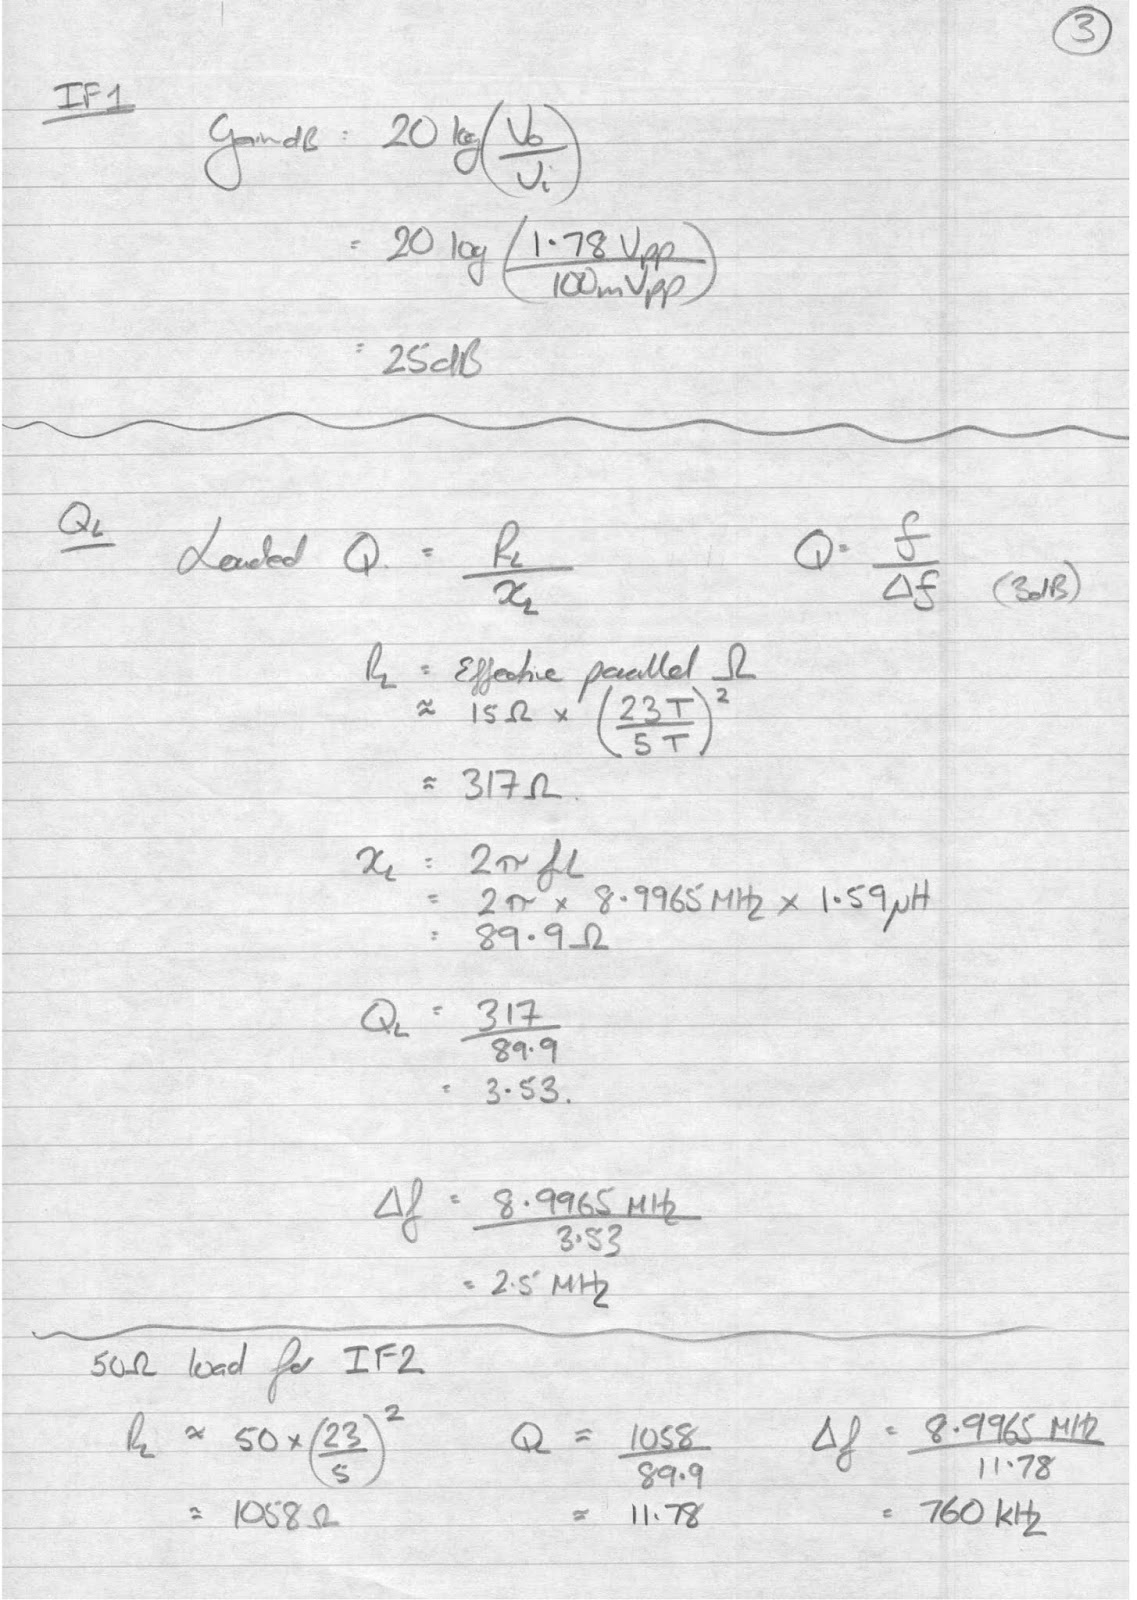 3
IF1
Gain dB = 20 log (Vo/Vi)
= 20 log (1.78 Vpp/100mVpp)
= 25dB
QL Loaded Q = RL/xL Q = f/Δf (3dB)
RL = Effective parallel Ω
≈ 15Ω × (23T/5T)²
≈ 317Ω.
xL = 2π f L
= 2π × 8.9965 MHz × 1.59μH
= 89.9Ω
QL = 317/89.9
= 3.53.
Δf = 8.9965 MHz/3.53
= 2.5 MHz
50Ω load for IF2
RL ≈ 50 × (23/5)² Q = 1058/89.9 Δf = 8.9965 MHz/11.78
≈ 1058Ω ≈ 11.78 = 760 kHz